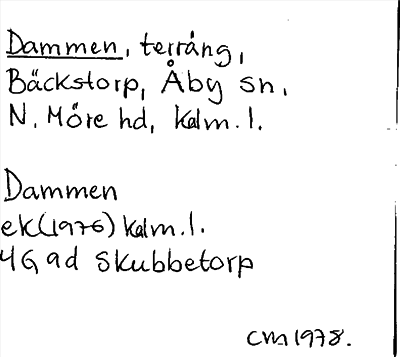 Dammen, terräng,
Bäckstorp, Åby sn,
N. Möre hd, Kalm. l.
Dammen
ek (1976) Kalm. l.
4G 9d Skubbetorp
CM 1978.